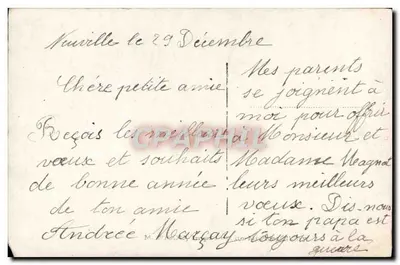 Neuville le 29 Décembre
Chère petite amie
Reçois les meilleurs
vœux et souhaits
de bonne année
de ton amie
Andrée Marçay
Mes parents
se joignent à
moi pour offrir
à Monsieur et
Madame Magnat
leurs meilleurs
vœux. Dis-nous
si ton papa est
toujours à la
guerre